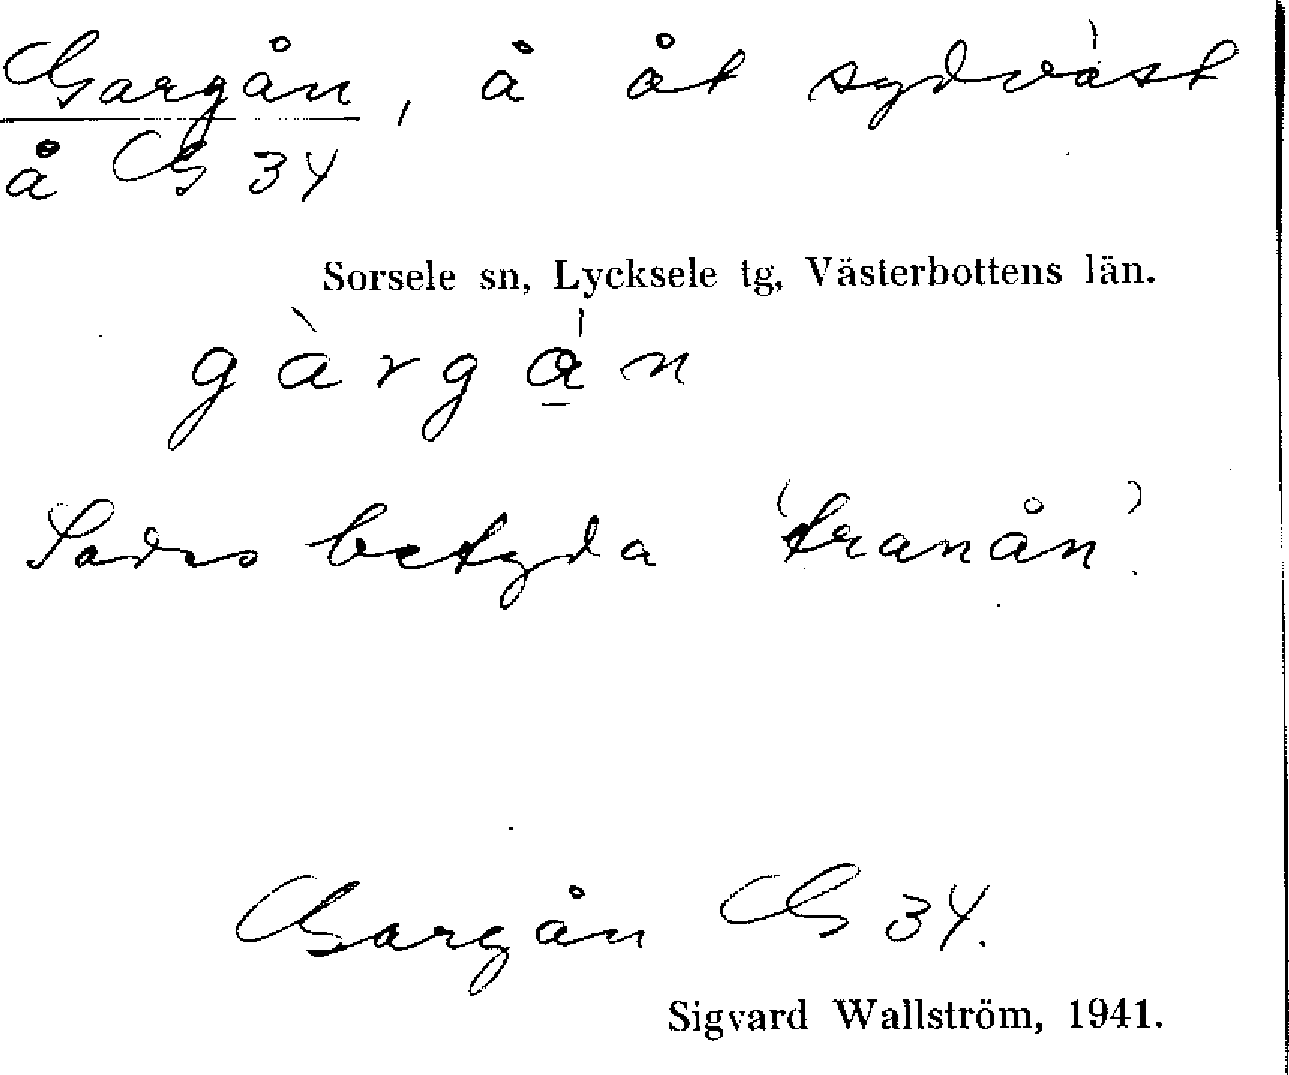 Gargån, å åt sydväst
å G 34
Sorsele sn, Lycksele tg, Västerbottens län.
gàrgá̱n
Sades betyda 'tranån'.
Gargån G 34.
Sigvard Wallström, 1941.